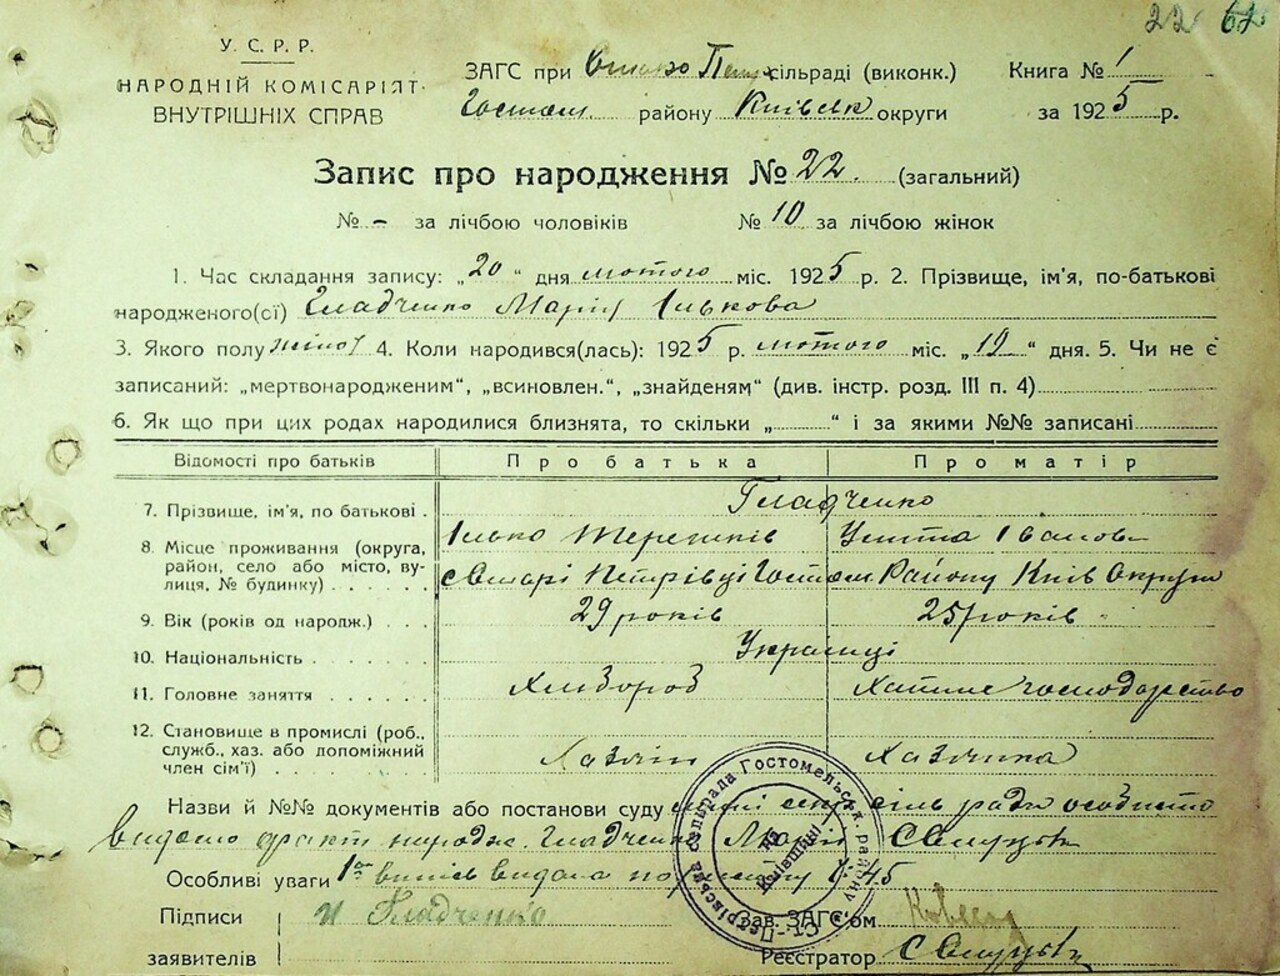 22 62
У. С. Р. Р.
НАРОДНІЙ КОМІСАРІЯТ
ВНУТРІШНІХ СПРАВ
ЗАГС при Старо Петр. сільраді (виконк.) Книга № 1
Гостом. району Київськ округи за 1925 р.
Запис про народження № 22. (загальний)
№ – за лічбою чоловіків № 10 за лічбою жінок
1. Час складання запису: „20“ дня лютого міс. 1925 р. 2. Прізвище, ім'я, по-батькові
народженого(сі) Гладченко Марія Ількова
3. Якого полу жіноч 4. Коли народився(лась): 1925 р. лютого міс. „12“ дня. 5. Чи не є
записаний: „мертвонародженим“, „всиновлен.“, „знайденям“ (див. інстр. розд. III п. 4)
6. Як що при цих родах народилися близнята, то скільки „ “ і за якими №№ записані
Відомості про батьків Про батька Про матір
7. Прізвище, ім'я, по батькові . Гладченко
Ілько Терешків Устта Іванов
8. Місце проживання (округа, район, село або місто, вулиця, № будинку) . . . . . . с Старі Петрівці Гостом. Району Київ Округи
9. Вік (років од народж.) . . . 29 років 25 років
10. Національність . . . . . . . Українці
11. Головне заняття . . . . . . Хлібороб Хатнє господарство
12. Становище в промислі (роб., служб., хаз. або допоміжний член сім'ї) . . . . . . . . Хазяін Хазяйка
Назви й №№ документів або постанови суду сільради особисто
видано факт народж. Гладченко Марії
Особливі уваги 1ая випісь видана по 45
Підписи И Гладченко Зав. ЗАГС'ом
заявителів Реєстратор
Петрівська сільрада Гостомельськ. району
на Київщині